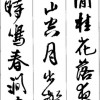 閒桂花落夜
山空月出
時鳴春澗